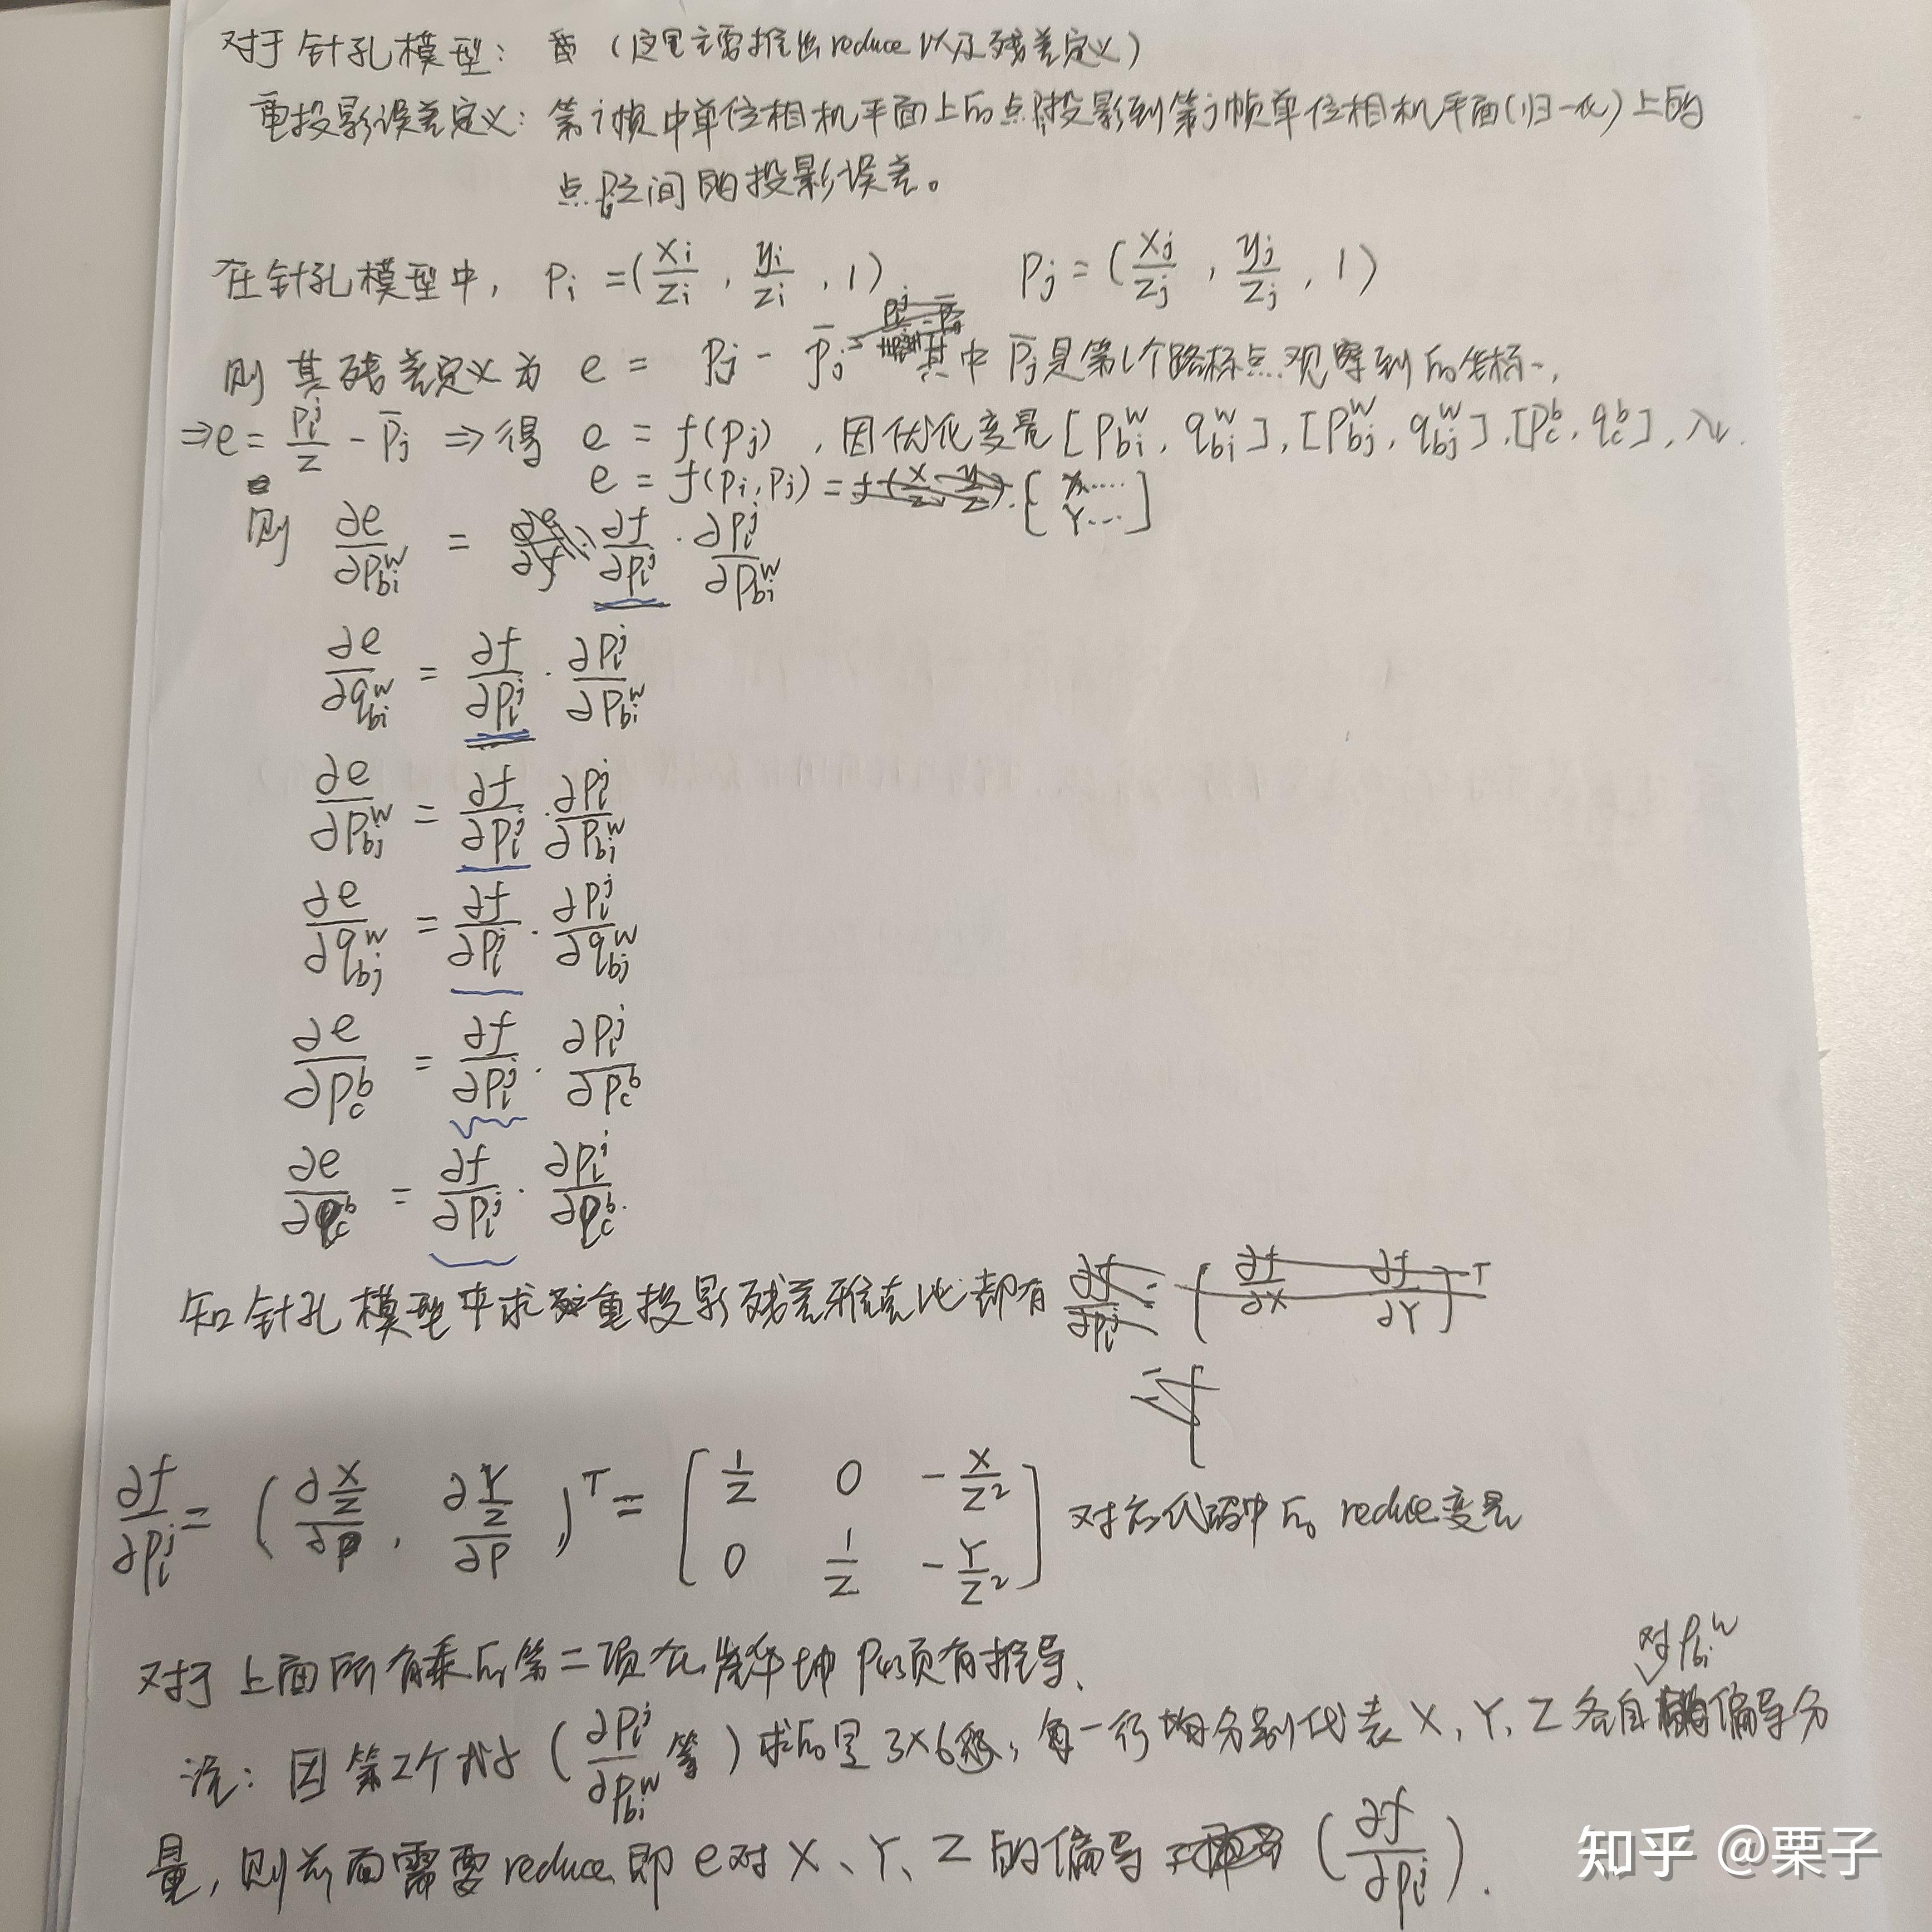 对于针孔模型: (这里主要推出reduce以及残差定义)
重投影误差定义: 第i帧中单位相机平面上的点投影到第j帧单位相机平面(归一化)上的
点Pj之间的投影误差。
在针孔模型中, Pi = (Xi/Zi, yi/Zi, 1) Pj = (Xj/Zj, yj/Zj, 1)
则其残差定义为 e = Pj - P̄j 其中 P̄j是第l个路标点观察到的坐标,
⇒ e = P_l^j/Z - P̄j ⇒ 得 e = f(Pj), 因优化变量 [P_bi^w, q_bi^w], [P_bj^w, q_bj^w], [P_c^b, q_c^b], λ
e = f(Pi, Pj) = [X.... Y...]
则 ∂e/∂P_bi^w = ∂f/∂P_l^j · ∂P_l^j/∂P_bi^w
∂e/∂q_bi^w = ∂f/∂P_l^j · ∂P_l^j/∂P_bi^w
∂e/∂P_bj^w = ∂f/∂P_l^j · ∂P_l^j/∂P_bj^w
∂e/∂q_bj^w = ∂f/∂P_l^j · ∂P_l^j/∂q_bj^w
∂e/∂P_c^b = ∂f/∂P_l^j · ∂P_l^j/∂P_c^b
∂e/∂q_c^b = ∂f/∂P_l^j · ∂P_l^j/∂q_c^b
知针孔模型中求重投影残差雅克比都有
∂f/∂P_l^j = (∂(X/Z)/∂P, ∂(Y/Z)/∂P)^T = [1/Z 0 -X/Z²; 0 1/Z -Y/Z²] 对应代码中的 reduce变量
对于上面所有乘的第二项在 P43页有推导.
对P_bi^w
注: 因第2个式子 (∂P_l^j/∂P_bi^w 等) 求的是3×6, 每一行均分别代表 X、Y、Z各自偏导分
量, 则前面需要reduce 即 e对 X、Y、Z的偏导 (∂f/∂P_l^j).
知乎 @栗子